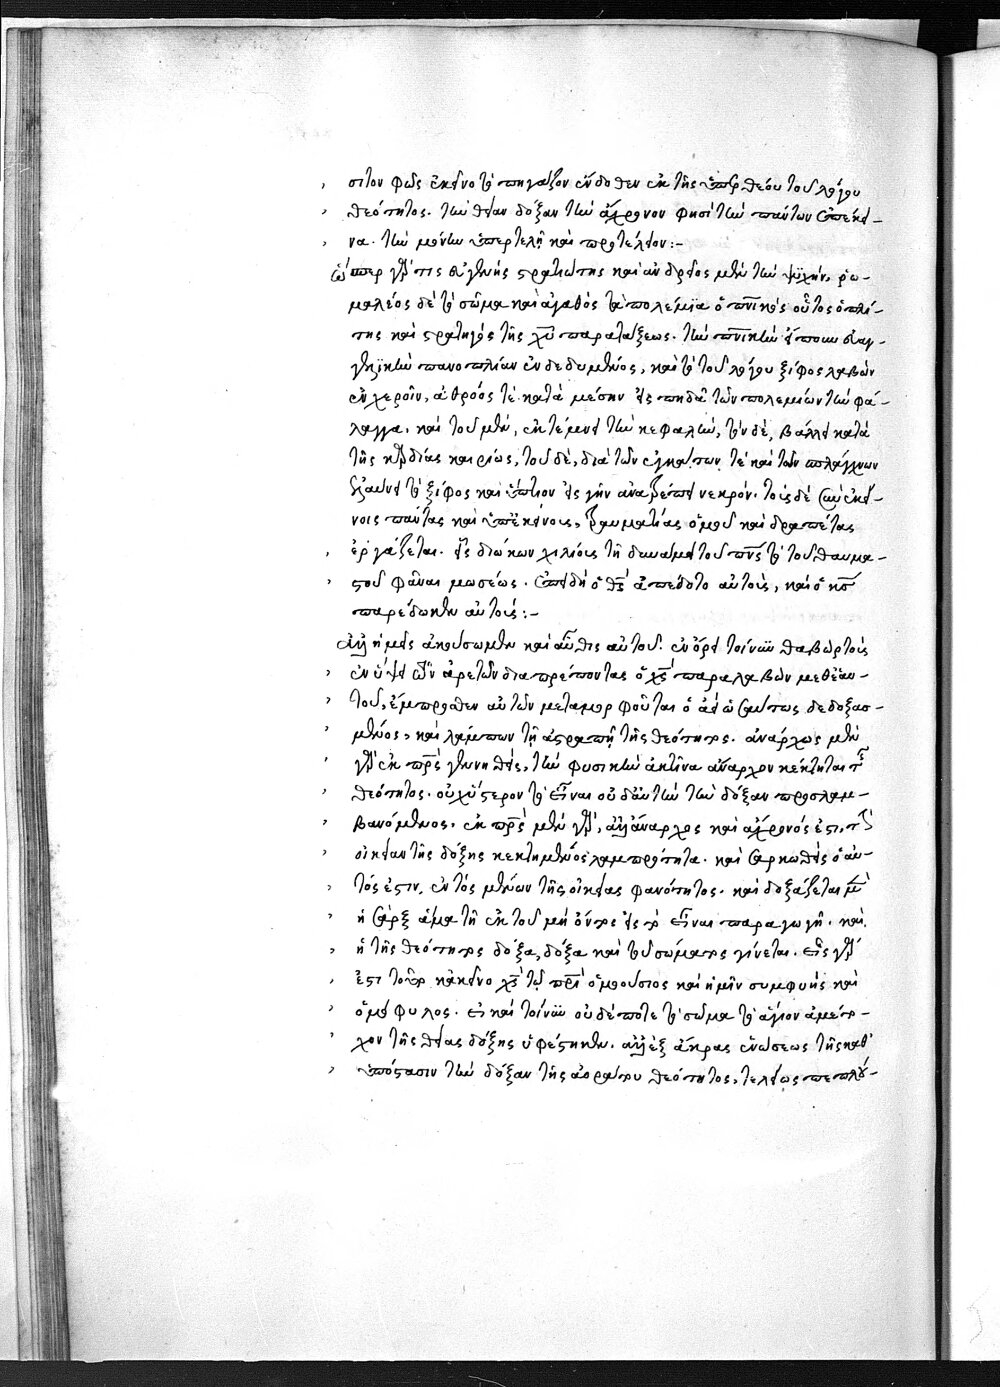 σιτον φῶς ἐκεῖνο τὸ πηγάζον ἔνδοθεν ἐκ τῆς ὑπερθέου τοῦ λόγου
θεότητος. τὴν θείαν δόξαν τὴν ἄχρονον φησὶ τὴν πάντων ἐπέκει-
να. τὴν μόνην ὑπερτελῆ καὶ προτέλειον:-
ὥσπερ γάρ τις εὐγενὴς στρατιώτης καὶ ἀνδρεῖος μὲν τὴν ψυχήν, ῥω-
μαλέος δὲ τὸ σῶμα καὶ ἀγαθὸς τὰ πολέμια ὁ πνικὸς οὗτος ὁπλί-
της καὶ στρατηγὸς τῆς χυ παρατάξεως. τὴν πνικὴν εὐαγ-
γελικὴν πανοπλίαν ἐνδεδυμένος, καὶ τὸ τοῦ λόγου ξίφος λαβὼν
ἐν χεροῖν, ἀθρόος τὲ κατὰ μέσην εἰσπηδᾶ τῶν πολεμίων τὴν φά-
λαγγα. καὶ τοῦ μὲν, ἐκτέμνει τὴν κεφαλὴν, τὸν δὲ, βάλλει κατὰ
τῆς καρδίας καιρίως, τοῦ δὲ, διὰ τῶν ἐγκάτων τὲ καὶ τῶν σπλάγχνων
ἐλαύνει τὸ ξίφος καὶ ὕπτιον εἰς γῆν ἀνατρέπει νεκρόν. τοὺς δὲ σὺν ἐκεί-
νοις πάντας καὶ ὑπ' ἐκείνοις, τραυματίας ὁμοῦ καὶ δραπέτας
ἐργάζεται. εἷς διώκων χιλίους τῇ δυνάμει τοῦ πνς τὸ τοῦ θαυμα-
στοῦ φᾶναι μωσέως. ἐπειδὴ ὁ θς ἀπέδοτο αὐτοὺς, καὶ ὁ κς
παρέδωκεν αὐτούς:-
ἀλλ' ἡμεῖς ἀκούσωμεν καὶ αὖθις αὐτοῦ. ἐν ὄρει τοίνυν θαβὼρ τοὺς
ἐν ὕψει τῶν ἀρετῶν διαπρέποντας ὁ χς παραλαβὼν μεθ' ἑαυ-
τοῦ, ἔμπροσθεν αὐτῶν μεταμορφοῦται ὁ ἀεὶ ὡσαύτως δεδοξασ-
μένος, καὶ λάμπων τῇ ἀστραπῇ τῆς θεότητος. ἀνάρχως μὲν
γὰρ ἐκ πρς γεννηθεὶς, τὴν φυσικὴν ἀκτῖνα ἄναρχον κέκτηται τῆς
θεότητος. οὐχ ὕστερον τὸ εἶναι οὐδ' αὖ τὴν δόξαν προσλαμ-
βανόμενος. ἐκ πρς μὲν γὰρ, ἀλλ' ἄναρχος καὶ ἄχρονός ἐστι, τῆς
οἰκείαν τῆς δόξης κεκτημένος λαμπρότητα. καὶ σαρκωθεὶς ὁ αὐ-
τός ἐστιν, ἐντὸς μένων τῆς οἰκείας φανότητος. καὶ δοξάζεται μὲν
ἡ σὰρξ ἅμα τῇ ἐκ τοῦ μὴ ὄντος εἰς τὸ εἶναι παραγωγῇ. καὶ
ἡ τῆς θεότητος δόξα, δόξα καὶ τοῦ σώματος γίνεται. εἷς γάρ
ἐστι τοῦτο κἀκεῖνο χς τῷ πρὶ ὁμοούσιος καὶ ἡμῖν συμφυὴς καὶ
ὁμόφυλος. εἰ καὶ τοίνυν οὐδέποτε τὸ σῶμα τὸ ἅγιον ἀμέτο-
χον τῆς θείας δόξης ὑφέστηκεν. ἀλλ' ἐξ ἄκρας ἑνώσεως τῆς καθ'
ὑπόστασιν τὴν δόξαν τῆς ἀοράτου θεότητος, τελείως πεπλού-